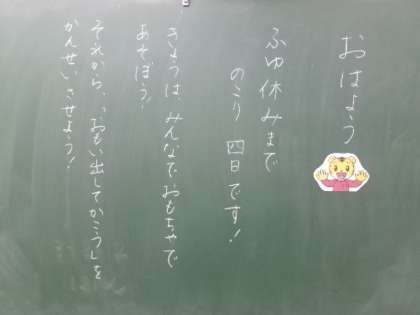 おはよう
ふゆ休みまで
のこり 四日です!
きょうは、みんなでおもちゃで
あそぼう!
それから、「おもい出してかこう」を
かんせいさせよう!